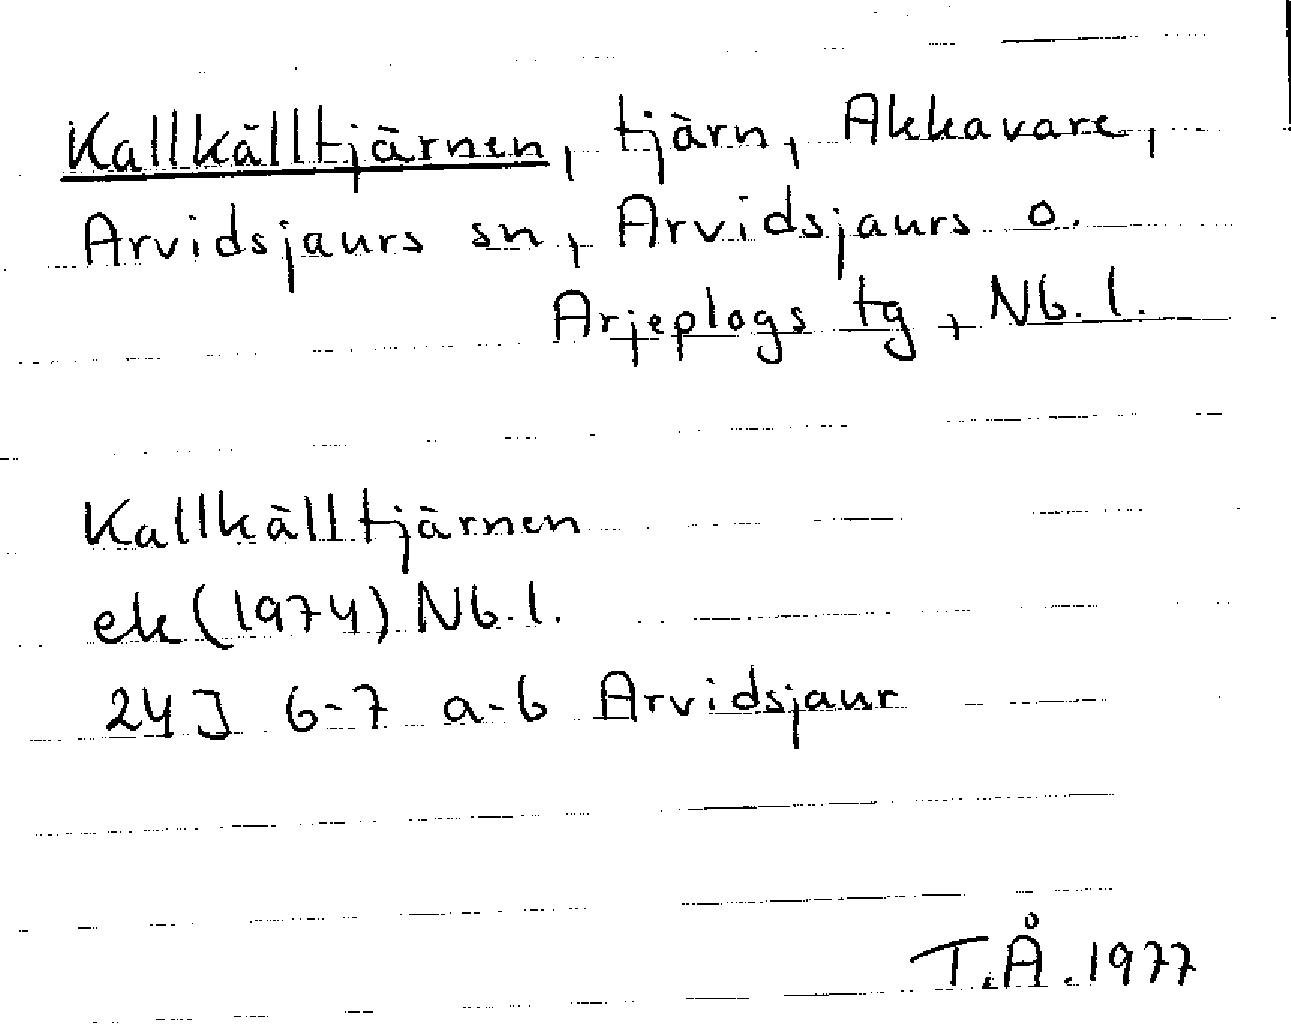 Kallkälltjärnen, tjärn, Akkavare,
Arvidsjaurs sn, Arvidsjaurs o.
Arjeplogs tg, Nb. l.
Kallkälltjärnen
ek (1974) Nb. l.
24J 6-7 a-b Arvidsjaur
T.Å. 1977